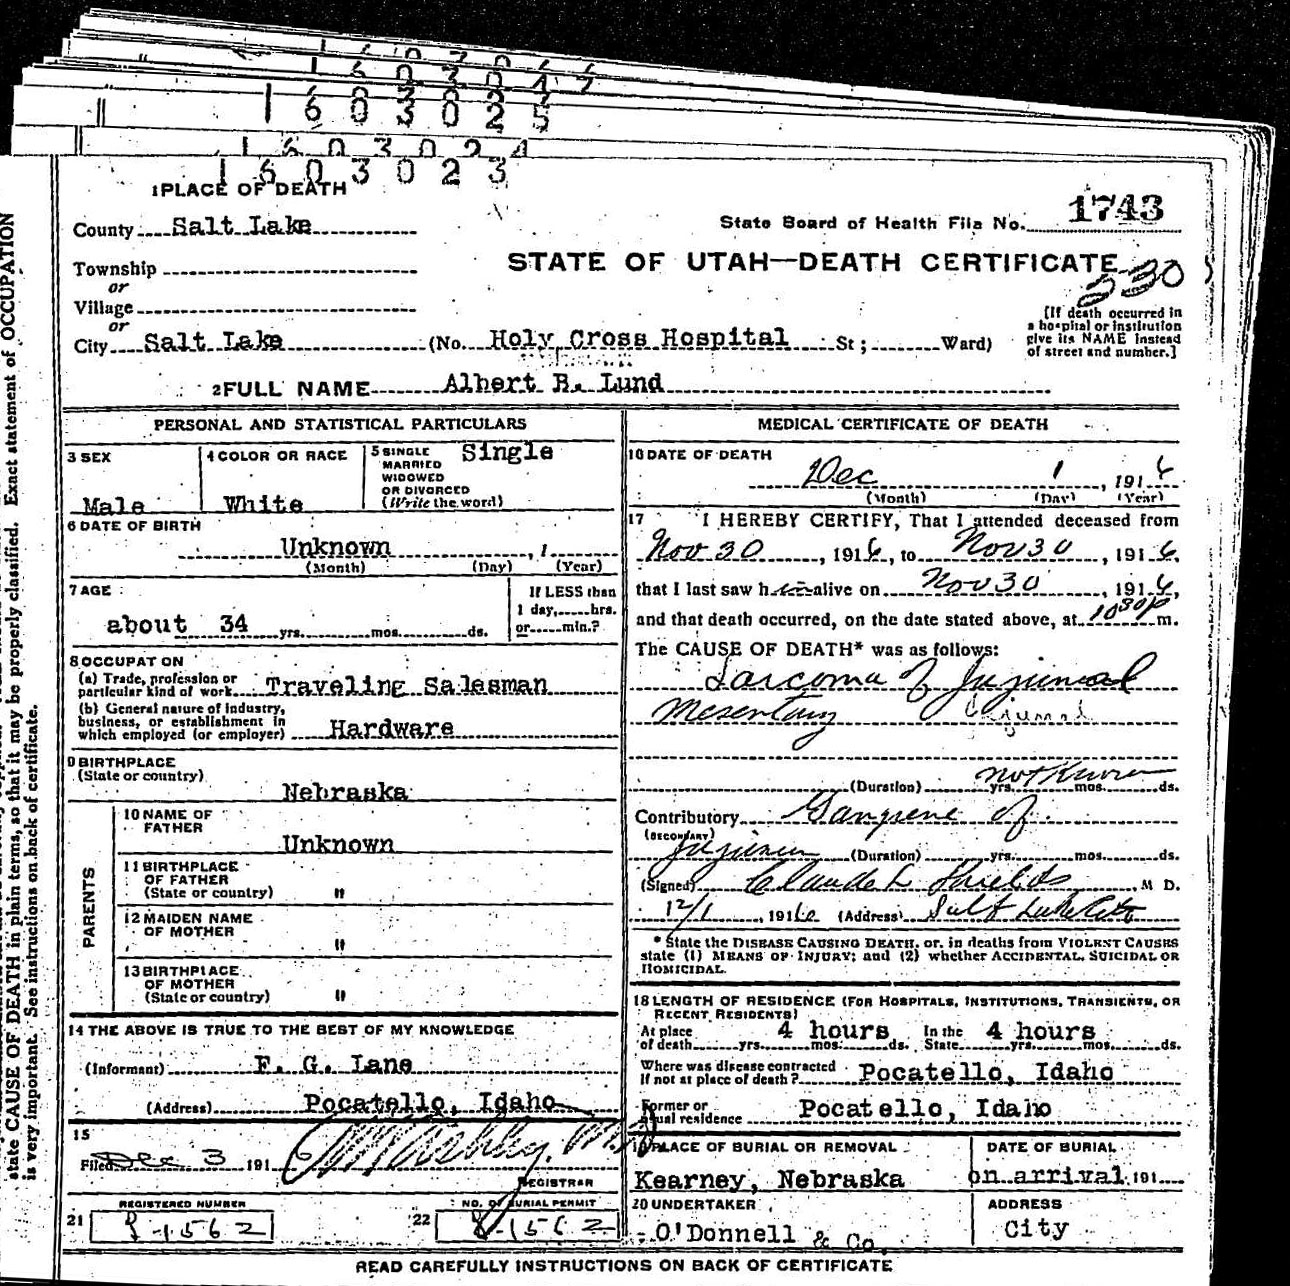 1603025
1603024
1603023
1 PLACE OF DEATH
State Board of Health File No. 1743
County Salt Lake
STATE OF UTAH—DEATH CERTIFICATE
Township
530
or
Village
or
City Salt Lake (No. Holy Cross Hospital St; Ward)
[If death occurred in
a hospital or institution
give its NAME instead
of street and number.]
2 FULL NAME Albert R. Lund
PERSONAL AND STATISTICAL PARTICULARS
3 SEX
Male
4 COLOR OR RACE
White
5 SINGLE
MARRIED
WIDOWED
OR DIVORCED
(Write the word)
Single
6 DATE OF BIRTH
Unknown , 1
(Month) (Day) (Year)
7 AGE
about 34 yrs. mos. ds.
If LESS than
1 day, hrs.
or min.?
8 OCCUPATION
(a) Trade, profession or
particular kind of work Traveling Salesman
(b) General nature of industry,
business, or establishment in
which employed (or employer) Hardware
9 BIRTHPLACE
(State or country)
Nebraska
PARENTS
10 NAME OF
FATHER
Unknown
11 BIRTHPLACE
OF FATHER
(State or country) "
12 MAIDEN NAME
OF MOTHER
"
13 BIRTHPLACE
OF MOTHER
(State or country) "
14 THE ABOVE IS TRUE TO THE BEST OF MY KNOWLEDGE
(Informant) F. G. Lane
(Address) Pocatello, Idaho
15
Filed Dec 3 1916
REGISTRAR
REGISTERED NUMBER
21 1562
NO. OF BURIAL PERMIT
22 1562
MEDICAL CERTIFICATE OF DEATH
16 DATE OF DEATH
Dec 1, 1916
(Month) (Day) (Year)
17 I HEREBY CERTIFY, That I attended deceased from
Nov 30, 1916, to Nov 30, 1916,
that I last saw him alive on Nov 30, 1916,
and that death occurred, on the date stated above, at 10 30 p m.
The CAUSE OF DEATH* was as follows:
Sarcoma of Jujuneal
Mesentary
(Duration) not Known yrs. mos. ds.
Contributory Gangrene of
(SECONDARY)
Jujunum (Duration) yrs. mos. ds.
(Signed) Claude L Shields M D.
12/1, 1916 (Address) Salt Lake City
* State the DISEASE CAUSING DEATH, or, in deaths from VIOLENT CAUSES
state (1) MEANS OF INJURY; and (2) whether ACCIDENTAL, SUICIDAL OR
HOMICIDAL.
18 LENGTH OF RESIDENCE (FOR HOSPITALS, INSTITUTIONS, TRANSIENTS, OR
RECENT RESIDENTS)
At place
of death yrs. 4 hours mos. ds. In the
State 4 hours yrs. mos. ds.
Where was disease contracted
if not at place of death? Pocatello, Idaho
Former or
usual residence Pocatello, Idaho
19 PLACE OF BURIAL OR REMOVAL
Kearney, Nebraska
DATE OF BURIAL
on arrival 191
20 UNDERTAKER
O'Donnell & Co.
ADDRESS
City
READ CAREFULLY INSTRUCTIONS ON BACK OF CERTIFICATE
state CAUSE OF DEATH in plain terms, so that it may be properly classified. Exact statement of OCCUPATION
is very important. See instructions on back of certificate.